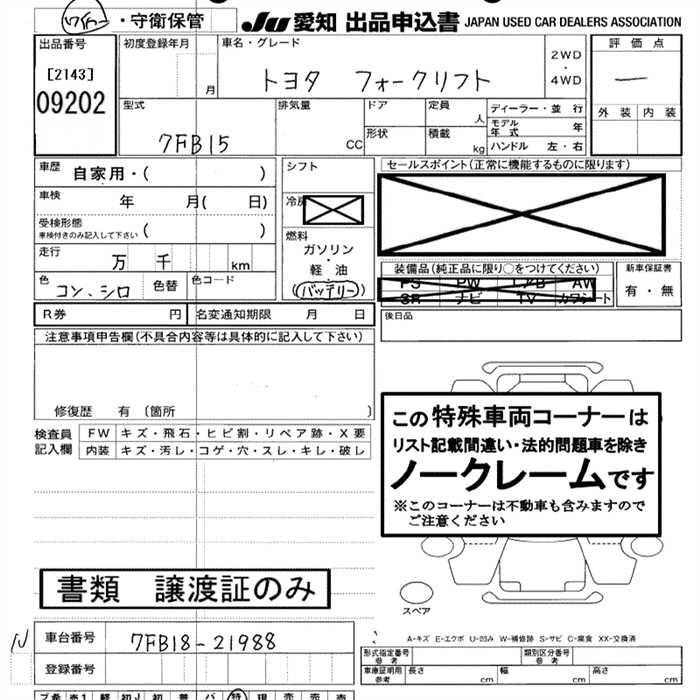 ・守衛保管
JU 愛知 出品申込書 JAPAN USED CAR DEALERS ASSOCIATION
出品番号
[2143]
09202
初度登録年月
月
車名・グレード
トヨタ フォークリフト
2WD
・
4WD
評価点
一
外装 内装
型式
7FB15
排気量
CC
ドア
形状
定員
人
積載
kg
ディーラー・並行
モデル年式 年
ハンドル 左・右
車歴
自家用・( )
車検
年 月( 日)
受検形態
車検付きのみ記入して下さい ( )
走行
万 千 km
色
コン、シロ
色替
色コード
シフト
冷房
燃料
ガソリン
・
軽油
・
(バッテリー)
セールスポイント(正常に機能するものに限ります)
装備品(純正品に限り○をつけてください)
PS PW エアB AW
SR ナビ TV カワシート
新車保証書
有・無
R券 円
名変通知期限 月 日
後日品
注意事項申告欄(不具合内容等は具体的に記入して下さい)
修復歴 有 〔箇所 〕
検査員
記入欄
FW キズ・飛石・ヒビ割・リペア跡・X要
内装 キズ・汚レ・コゲ・穴・スレ・キレ・破レ
この特殊車両コーナーは
リスト記載間違い・法的問題車を除き
ノークレームです
※このコーナーは不動車も含みますので
ご注意ください
書類 譲渡証のみ
スペア
A-キズ E-エクボ U-凹み W-補修跡 S-サビ C-腐食 XX-交換済
N
車台番号
7FB18-21988
登録番号
形式指定番号
参考
類別区分番号
参考
車庫証明用
参考
長さ cm
幅 cm
高さ cm